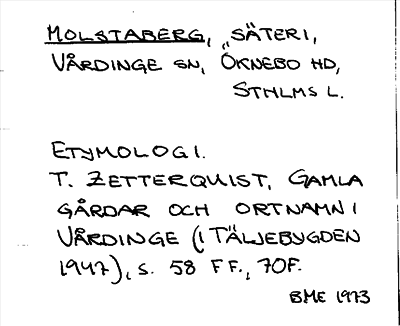 MOLSTABERG, SÄTERI,
VÅRDINGE SN, ÖKNEBO HD,
STHLMS L.
ETYMOLOGI.
T. ZETTERQUIST, GAMLA
GÅRDAR OCH ORTNAMN I
VÅRDINGE (I TÄLJEBYGDEN
1947), S. 58 FF., 70F.
BME 1973